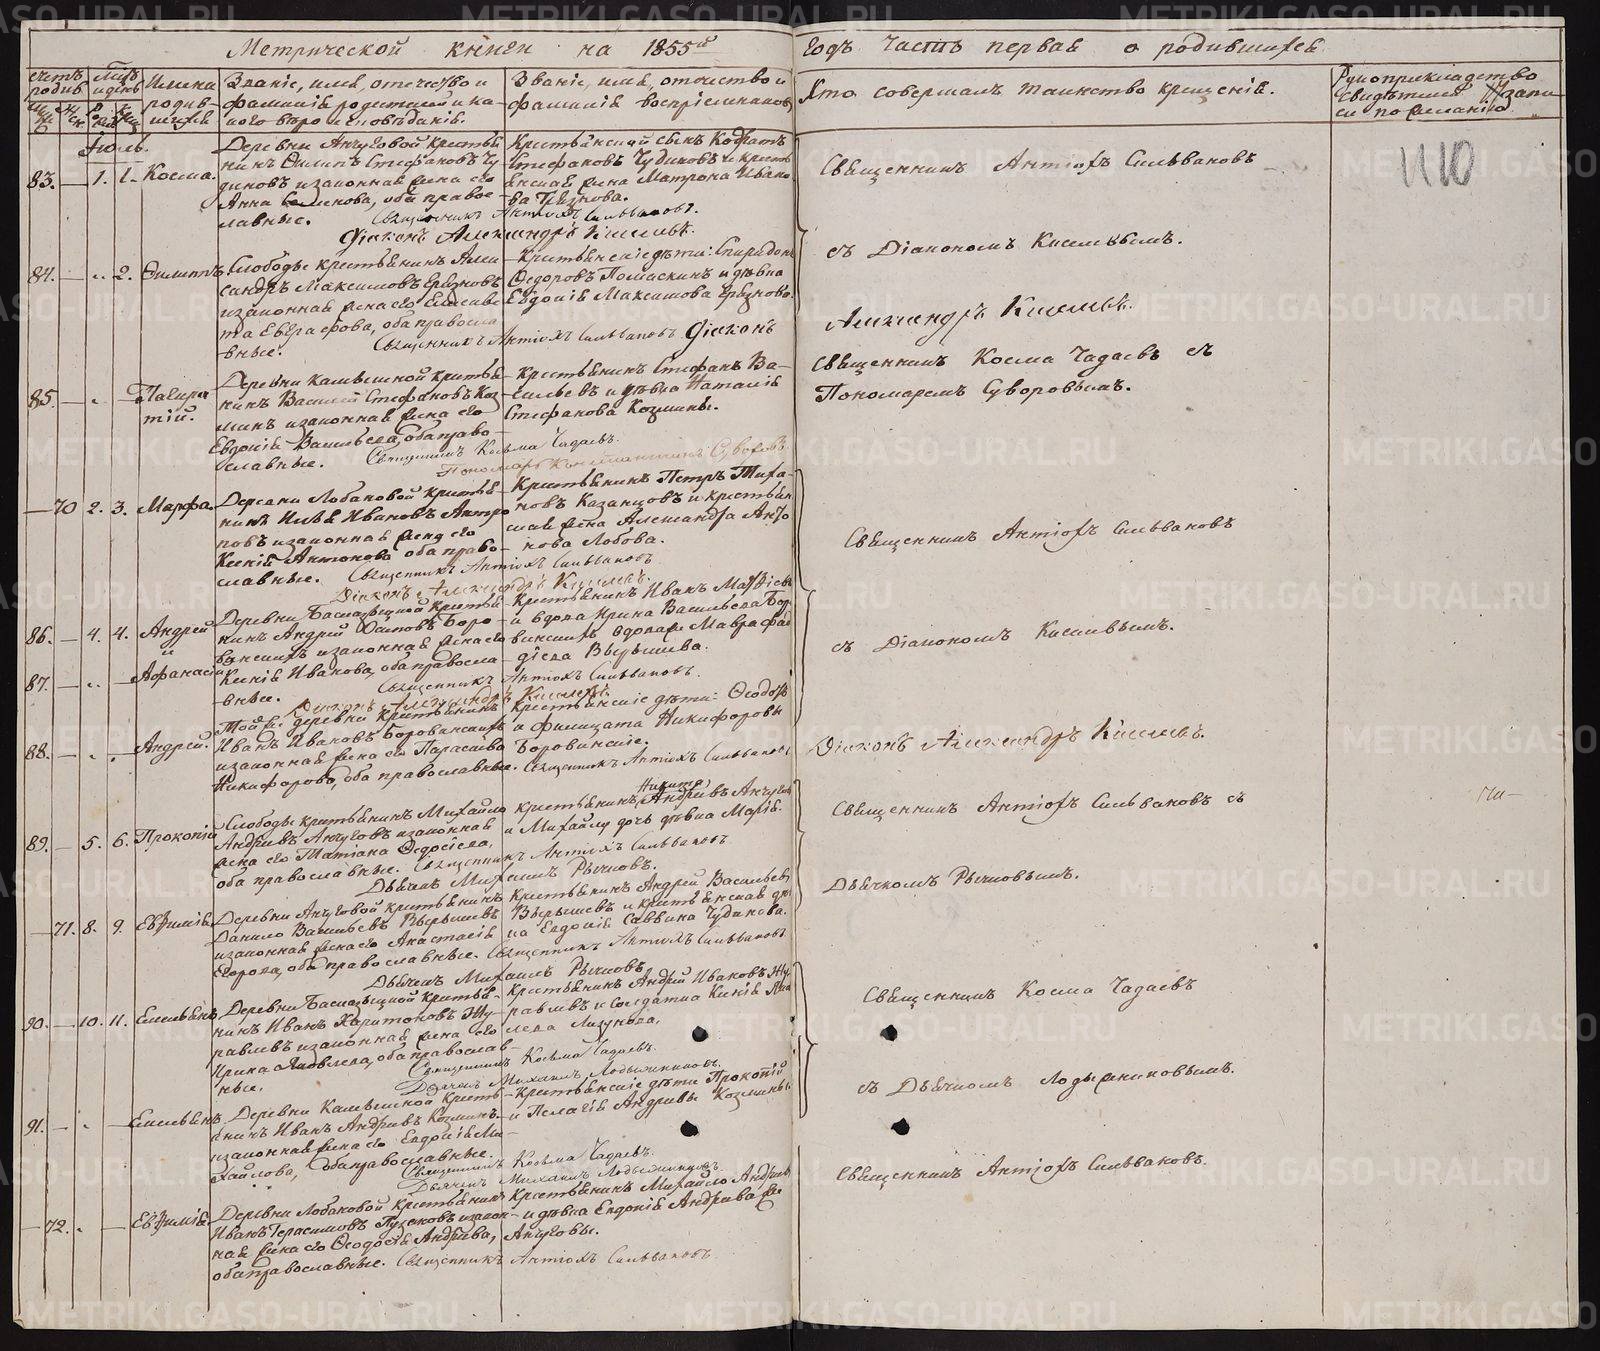 Метрической книги на 1855й годъ Часть первая о родившихся
счетъ родив.
Мсцъ и день
Имена родив-шихся
Званіе, имя, отечество и фамилія родителей и ка-кого вѣроисповѣданія.
Званіе, имя, отчество и фамилія воспріемниковъ
Кто совершалъ таинство крещенія.
Рукоприкладство свидѣтелей запи-си по желанію.
Іюль.
83. — 1. 1. Косма.
Деревни Анчуговой крестья-
нинъ Филипъ Стефановъ Чу-
диновъ и законная жена его
Анна Семенова, оба право-
славные.
Крестьянской сынъ Кодратъ
Стефановъ Чудиновъ и кресть-
янская жена Матрона Ивано-
ва Грязнова.
Священникъ Антіохъ Сильвановъ.
Діаконъ Александръ Киселевъ.
Священникъ Антіохъ Сильвановъ
1110
84. — „ 2. Филиппъ
Слободы крестьянинъ Алек-
сандръ Максимовъ Грязновъ
и законная жена его Елисаве-
та Евграфова, оба правосла-
вные.
Крестьянскіе дѣти: Спиридонъ
Федоровъ Помаскинъ и дѣвка
Евдокія Максимова Грязнова.
Священникъ Антіохъ Сильвановъ Діаконъ
съ Діакономъ Киселевымъ.
Александръ Киселевъ.
85. — „ — Панкра-
тій.
Деревни Камышной крестья-
нинъ Василій Стефановъ Коз-
минъ и законная жена его
Евдокія Васильева, оба право-
славные.
Крестьянинъ Стефанъ Ва-
сильевъ и дѣвка Наталія
Стефанова Козмины.
Священникъ Козьма Чадаевъ.
Пономарь Константинъ Суворовъ.
Священникъ Косма Чадаевъ съ
Пономаремъ Суворовымъ.
— 70 2. 3. Марфа.
Деревни Лобановой крестья-
нинъ Илья Ивановъ Антро-
повъ и законная жена его
Ксенія Антонова, оба право-
славные.
Крестьянинъ Петръ Тиха-
новъ Казанцовъ и крестьян-
ская жена Александра Анто-
нова Лобова.
Священникъ Антіохъ Сильвановъ
Діаконъ Александръ Киселевъ.
Священникъ Антіохъ Сильвановъ
86. — 4. 4. Андрей
и
87. — „ — Афанасій
Деревни Баскальской крестья-
нинъ Андрей Осиповъ Боро-
вонскихъ и законная жена его
Ксенія Иванова, оба правосла-
вные.
Крестьянинъ Иванъ Матвіевъ
и вдова Ирина Васильева Бор-
Священникъ Антіохъ Сильвановъ.
Діаконъ Александръ Киселевъ.
съ Діакономъ Киселевымъ.
88. — „ „ Андрей.
Той же деревни крестьянинъ
Иванъ Ивановъ Боровонскихъ
и законная жена его Парасковья
Никифорова, оба православные.
Крестьянскіе дѣти: Феодотъ
и Фелицата Никифоровы
Боровонскіе.
Священникъ Антіохъ Сильвановъ
Діаконъ Александръ Киселевъ.
89. — 5. 6. Прокопій
Слободы крестьянинъ Михайло
Андріевъ Анчуговъ и законная
жена его Татіана Федосіева,
оба православные.
Никита
Крестьянинъ Андріевъ Анчуговъ
и Михайлу дочь дѣвка Марія.
Священникъ Антіохъ Сильвановъ
Дьячекъ Михаилъ Рычковъ.
Священникъ Антіохъ Сильвановъ съ
Дьячкомъ Рычковымъ.
— 71. 8. 9. Евѳимія
Деревни Анчуговой крестьянинъ
Данило Васильевъ Вырышевъ
и законная жена его Анастасія
Егорова, оба православные.
Крестьянинъ Андрей Васильевъ
Вырышевъ и крестьянская дѣв-
ка Евдокія Саввина Чудинова.
Священникъ Антіохъ Сильвановъ
Дьячекъ Михаилъ Рычковъ.
90. — 10. 11. Емельянъ
Деревни Баскальской крестья-
нинъ Иванъ Харитоновъ Жу-
равлевъ и законная жена его
Ирина Яковлева, оба православ-
ные.
Крестьянинъ Андрей Ивановъ Жу-
равлевъ и солдатка Ксенія Яко-
влева Лизунова.
Священникъ Козьма Чадаевъ.
Дьячекъ Михаилъ Лодыжниковъ.
Священникъ Косма Чадаевъ
съ Дьячкомъ Лодыжниковымъ.
91. — „ — Емельянъ
Деревни Камышной кресть-
янинъ Иванъ Андріевъ Козминъ
и законная жена его Евдокія Ми-
хайлова, оба православные.
Крестьянскіе дѣти Прокопій
и Пелагія Андріевы Козмины
Священникъ Козьма Чадаевъ.
Дьячекъ Михаилъ Лодыжниковъ.
— 72. „ — Евѳимія
Деревни Лобановой крестьянинъ
Иванъ Герасимовъ Пузановъ и закон-
ная жена его Феодосія Андріева,
оба православные.
Крестьянинъ Михайло Андріевъ
и дѣвка Евдокія Андріева
Анчуговы.
Священникъ Антіохъ Сильвановъ
Священникъ Антіохъ Сильвановъ.
METRIKI.GASO-URAL.RU